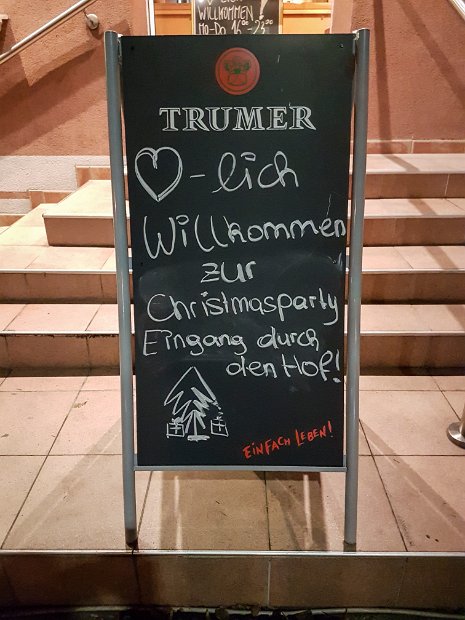 WILLKOMMEN
MO-DO 16
TRUMER
♡-lich
Willkommen
zur
Christmasparty
Eingang durch
den Hof!
EINFACH LEBEN!